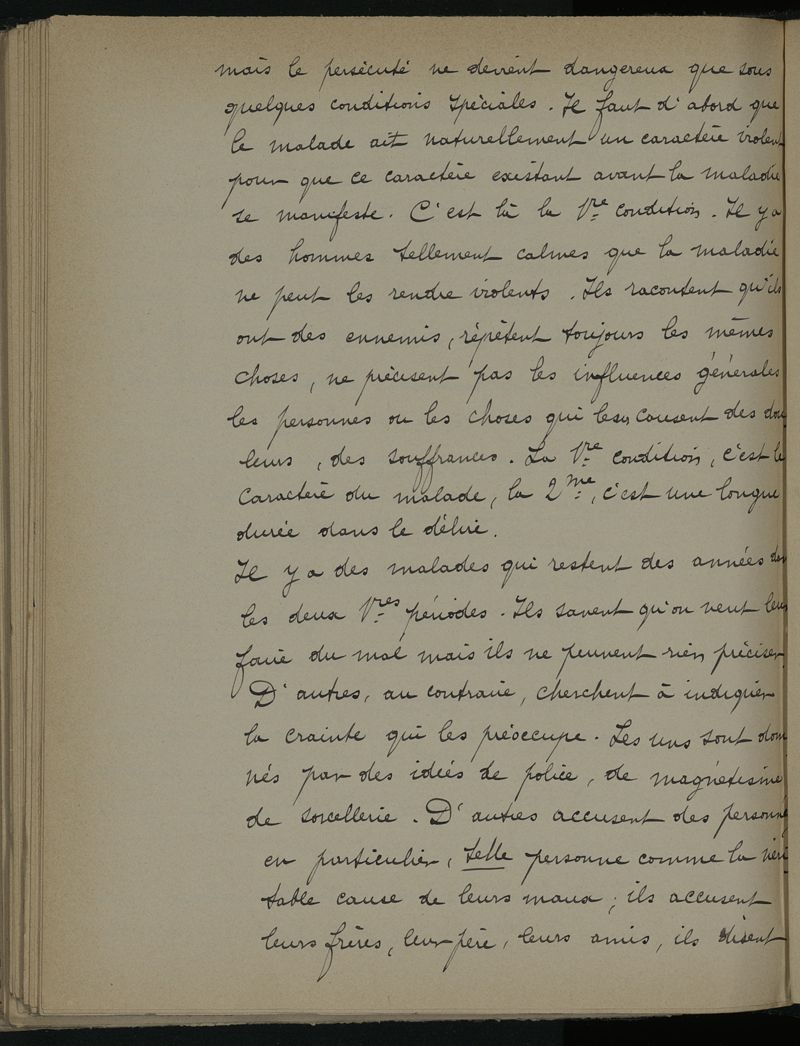 mais le persécuté ne devient dangereux que sous
quelques conditions spéciales. Il faut d'abord que
le malade ait naturellement un caractère violent
pour que ce caractère existant avant la maladie
se manifeste. C'est là la 1re condition. Il y a
des hommes tellement calmes que la maladie
ne peut les rendre violents. Ils racontent qu'ils
ont des ennemis, répètent toujours les mêmes
choses, ne précisent pas les influences générales
les personnes ou les choses qui leur causent des dou
leurs, des souffrances. La 1re condition, c'est le
caractère du malade, la 2me, c'est une longue
durée dans le délire.
Il y a des malades qui restent des années dans
les deux 1res périodes. Ils savent qu'on veut leur
faire du mal mais ils ne peuvent rien préciser.
D'autres, au contraire, cherchent à indiquer
la crainte qui les préoccupe. Les uns sont domi
nés par des idées de police, de magnétisme
de sorcellerie. D'autres accusent des personnes
en particulier, telle personne comme la véri
table cause de leurs maux; ils accusent
leurs frères, leur père, leurs amis, ils disent